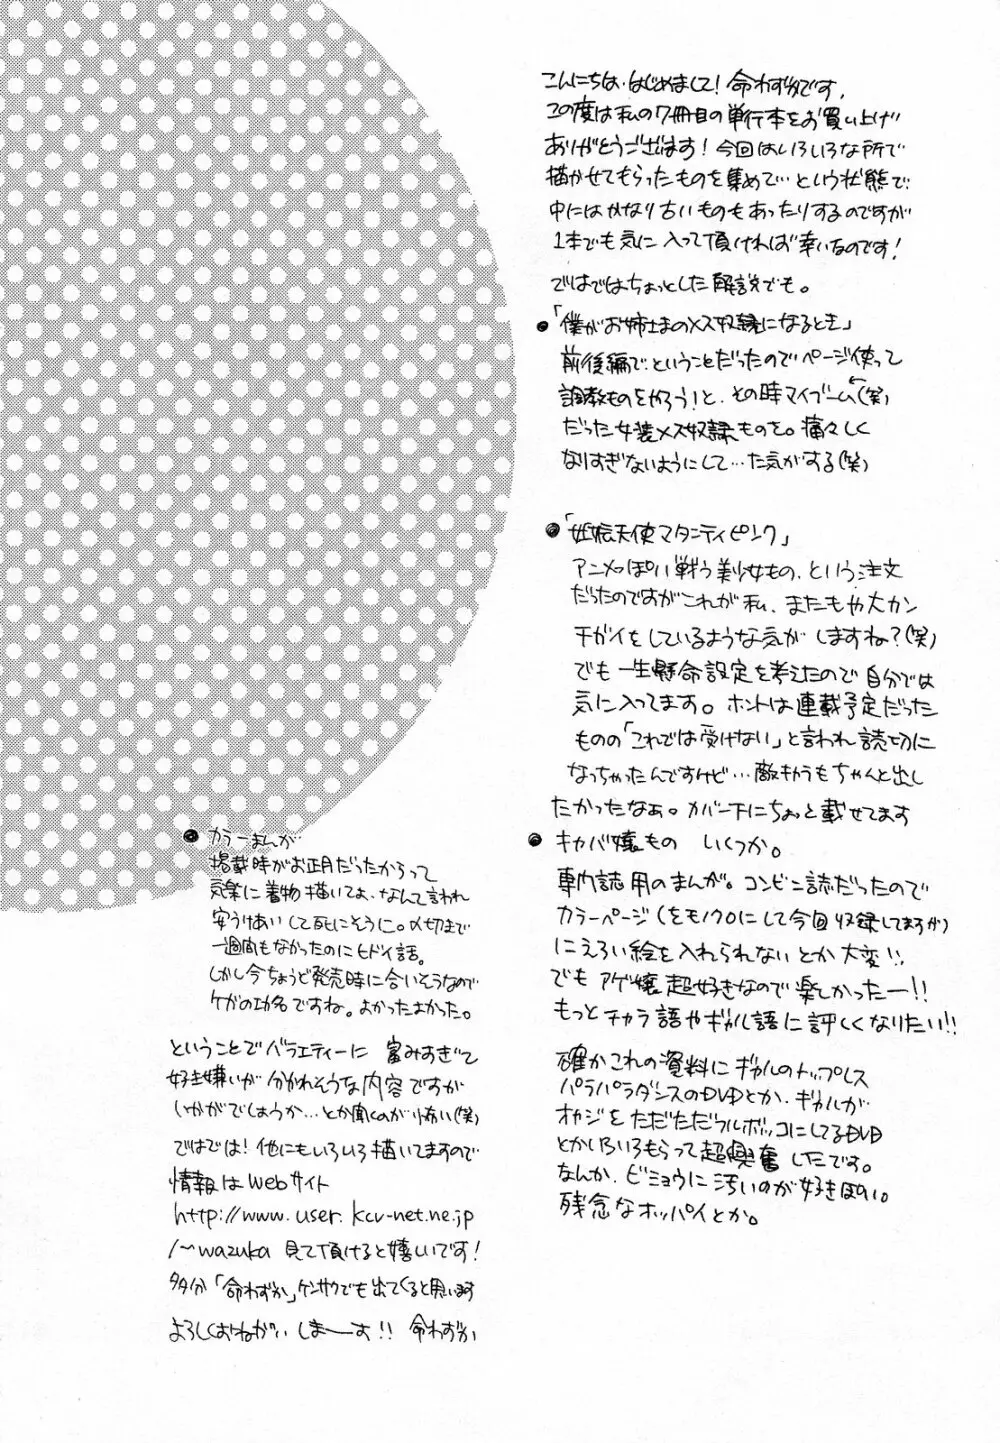 こんにちは、はじめまして！命わずかです。
この度は私の7冊目の単行本をお買い上げ
ありがとうございます！今回はいろいろな所で
描かせてもらったものを集めて…という状態で、
中にはかなり古いものもあったりするのですが
1本でも気に入って頂ければ幸いなのです！
ではではちょっとした解説でも。
●「僕がお姉さまのメス奴隷になるとき」
前後編で、ということだったのでページ使って
調教ものをやろう！と、その時マイブーム(笑)
だった女装メス奴隷ものを。痛々しく
なりすぎないようにして…た気がする(笑)
●「妊娠天使マタニティピンク」
アニメっぽい戦う美少女もの、という注文
だったのですがこれが私、またもや大カン
チガイをしているような気がしますね？(笑)
でも一生懸命設定を考えたので自分では
気に入ってます。ホントは連載予定だった
ものの「これでは受けない」と言われ読切に
なっちゃったんですけど…敵キャラもちゃんと出し
たかったなぁ。カバー下にちょっと載せてます
●キャバ嬢もの　いくつか。
専門誌用のまんが。コンビニ誌だったので
カラーページ（をモノクロにして今回収録してますが）
にえろい絵を入れられないとか大変!!
でもアゲ嬢超好きなので楽しかったー!!
もっとチャラ語やギャル語に詳しくなりたい!!
確かこれの資料にギャルのトップレス
パラパラダンスのDVDとか、ギャルが
オヤジをただただフルボッコにしてるDVD
とかいろいろもらって超興奮したです。
なんか、ビミョウに汚いのが好きぽい。
残念なオッパイとか。
●カラーまんが
掲載時がお正月だったからって
気楽に着物描いてよ、なんて言われ
安うけあいして死にそうに。〆切まで
一週間もなかったのにヒドイ話。
しかし今ちょうど発売時に合いそうなので
ケガの功名ですね。よかったよかった。
ということでバラエティーに富みすぎて
好き嫌いが分かれそうな内容ですが
いかがでしょうか…とか聞くのが怖い(笑)
ではでは！他にもいろいろ描いてますので
情報はWebサイト
http://www.user.kcv-net.ne.jp
/~wazuka 見て頂けると嬉しいです！
多分「命わずか」ケンサクでも出てくると思います
よろしくおねがいしまーす!!　命わずか